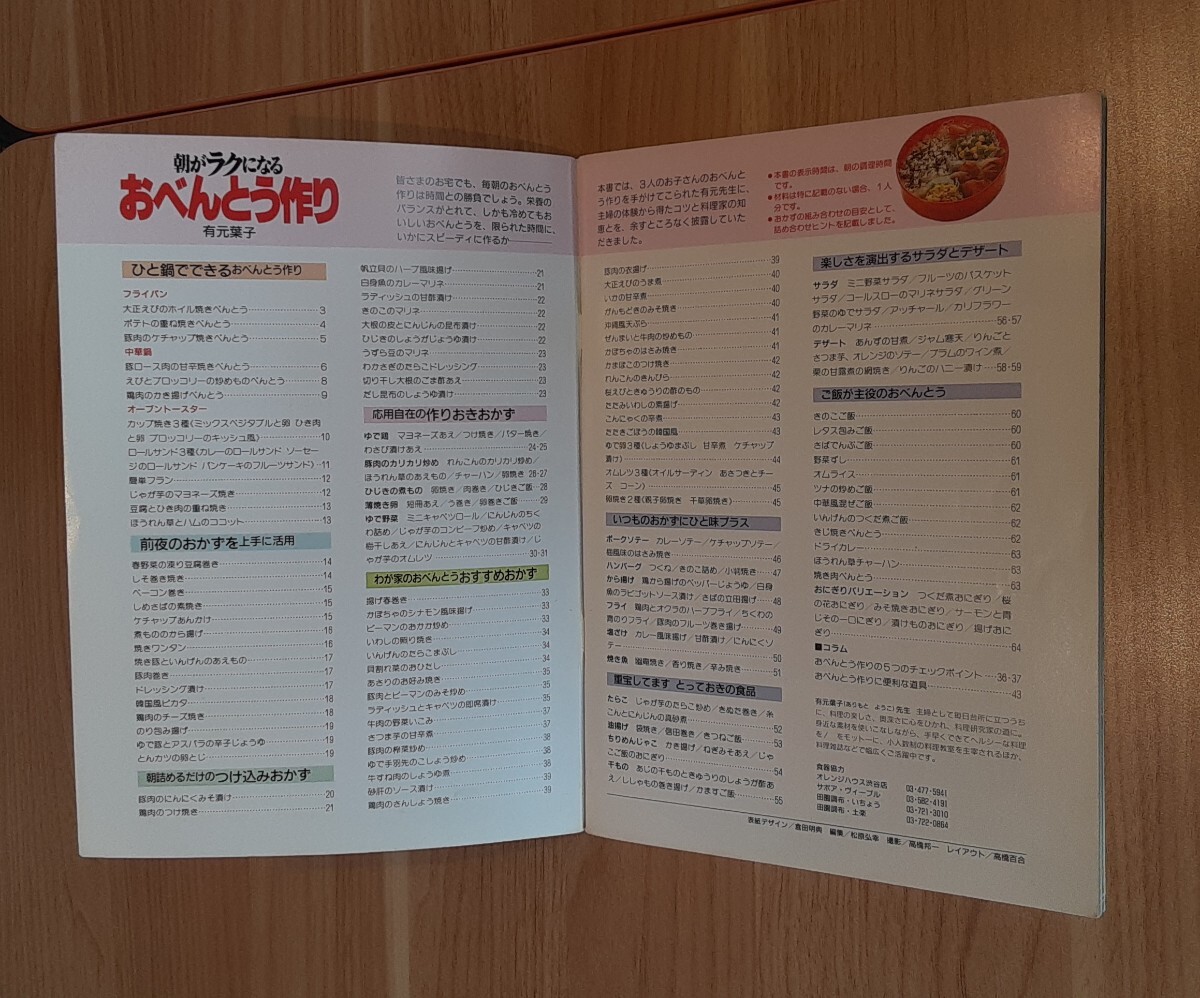 朝がラクになる
おべんとう作り
有元葉子
皆さまのお宅でも、毎朝のおべんとう
作りは時間との勝負でしょう。栄養の
バランスがとれて、しかも冷めてもお
いしいおべんとうを、限られた時間に、
いかにスピーディに作るか――――
ひと鍋でできるおべんとう作り
フライパン
大正えびのホイル焼きべんとう 3
ポテトの重ね焼きべんとう 4
豚肉のケチャップ焼きべんとう 5
中華鍋
豚ロース肉の甘辛焼きべんとう 6
えびとブロッコリーの炒めものべんとう 8
鶏肉のかき揚げべんとう 9
オーブントースター
カップ焼き3種(ミックスベジタブルと卵 ひき肉
と卵 ブロッコリーのキッシュ風) 10
ロールサンド3種(カレーのロールサンド ソーセー
ジのロールサンド パンケーキのフルーツサンド) 11
簡単フラン 12
じゃが芋のマヨネーズ焼き 12
豆腐とひき肉の重ね焼き 13
ほうれん草とハムのココット 13
前夜のおかずを上手に活用
春野菜の凍り豆腐巻き 14
しそ巻き焼き 14
ベーコン巻き 15
しめさばの素焼き 15
ケチャップあんかけ 15
煮もののから揚げ 16
焼きワンタン 16
焼き豚といんげんのあえもの 17
豚肉巻き 17
ドレッシング漬け 17
韓国風ピカタ 18
鶏肉のチーズ焼き 18
のり包み揚げ 19
ゆで豚とアスパラの辛子じょうゆ 19
とんカツの卵とじ 19
朝詰めるだけのつけ込みおかず
豚肉のにんにくみそ漬け 20
鶏肉のつけ焼き 21
帆立貝のハーブ風味揚げ 21
白身魚のカレーマリネ 21
ラディッシュの甘酢漬け 22
きのこのマリネ 22
大根の皮とにんじんの昆布漬け 22
ひじきのしょうがじょうゆ漬け 22
うずら豆のマリネ 23
わかさぎのたらこドレッシング 23
切り干し大根のごま酢あえ 23
だし昆布のしょうゆ漬け 23
応用自在の作りおきおかず
ゆで鶏 マヨネーズあえ/つけ焼き/バター焼き/
わさび漬けあえ 24・25
豚肉のカリカリ炒め れんこんのカリカリ炒め/
ほうれん草のあえもの/チャーハン/卵焼き 26・27
ひじきの煮もの 卵焼き/肉巻き/ひじきご飯 28
薄焼き卵 短冊あえ/う巻き/卵巻きご飯 29
ゆで野菜 ミニキャベツロール/にんじんのちく
わ詰め/じゃが芋のコンビーフ炒め/キャベツの
梅干しあえ/にんじんとキャベツの甘酢漬け/じ
ゃが芋のオムレツ 30・31
わが家のおべんとうおすすめおかず
揚げ春巻き 33
かぼちゃのシナモン風味揚げ 33
ピーマンのおかか炒め 33
いわしの照り焼き 34
いんげんのたらこまぶし 34
貝割れ菜のおひたし 34
あさりのお好み焼き 35
豚肉とピーマンのみそ炒め 35
ラディッシュとキャベツの即席漬け 35
牛肉の野菜いこみ 37
さつま芋の甘辛煮 37
豚肉の榨菜炒め 38
ゆで手羽先のこしょう炒め 38
牛すね肉のしょうゆ煮 38
砂肝のソース漬け 39
鶏肉のさんしょう焼き 39
本書では、3人のお子さんのおべんと
う作りを手がけてこられた有元先生に、
主婦の体験から得たコツと料理家の知
恵とを、余すところなく披露していた
だきました。
●本書の表示時間は、朝の調理時間
です。
●材料は特に記載のない場合、1人
分です。
●おかずの組み合わせの目安として、
詰め合わせヒントを記載しました。
豚肉の衣揚げ 39
大正えびのうま煮 40
いかの甘辛煮 40
がんもどきのみそ焼き 40
沖縄風天ぷら 41
ぜんまいと牛肉の炒めもの 41
かぼちゃのはさみ焼き 41
かまぼこのつけ焼き 42
れんこんのきんぴら 42
桜えびときゅうりの酢のもの 42
たたみいわしの素揚げ 42
こんにゃくの辛煮 43
たたきごぼうの韓国風 43
ゆで卵3種(しょうゆまぶし 甘辛煮 ケチャップ
漬け) 44
オムレツ3種(オイルサーディン あさつきとチー
ズ コーン) 45
卵焼き2種(親子卵焼き 千草卵焼き) 45
いつものおかずにひと味プラス
ポークソテー カレーソテー/ケチャップソテー/
梅風味のはさみ焼き 46
ハンバーグ つくね/きのこ詰め/小判焼き 47
から揚げ 鶏から揚げのペッパーじょうゆ/白身
魚のラビゴットソース漬け/さばの立田揚げ 48
フライ 鶏肉とオクラのハーブフライ/ちくわの
青のりフライ/豚肉のフルーツ巻き揚げ 49
塩ざけ カレー風味揚げ/甘酢漬け/にんにくソ
テー 50
焼き魚 幽庵焼き/香り焼き/辛み焼き 51
重宝してます とっておきの食品
たらこ じゃが芋のたらこ炒め/きぬた巻き/糸
こんとにんじんの真砂煮 52
油揚げ 袋焼き/信田巻き/きつねご飯 53
ちりめんじゃこ かき揚げ/ねぎみそあえ/じゃ
こご飯のおにぎり 54
干もの あじの干ものときゅうりのしょうが酢あ
え/ししゃもの巻き揚げ/かますご飯 55
楽しさを演出するサラダとデザート
サラダ ミニ野菜サラダ/フルーツのバスケット
サラダ/コールスローのマリネサラダ/グリーン
野菜のゆでサラダ/アッチャール/カリフラワー
のカレーマリネ 56・57
デザート あんずの甘煮/ジャム寒天/りんごと
さつま芋、オレンジのソテー/プラムのワイン煮/
栗の甘露煮の網焼き/りんごのハニー漬け 58・59
ご飯が主役のおべんとう
きのこご飯 60
レタス包みご飯 60
さばでんぶご飯 60
野菜ずし 61
オムライス 61
ツナの炒めご飯 61
中華風混ぜご飯 62
いんげんのつくだ煮ご飯 62
きじ焼きべんとう 62
ドライカレー 63
ほうれん草チャーハン 63
焼き肉べんとう 63
おにぎりバリエーション つくだ煮おにぎり/桜
の花おにぎり/みそ焼きおにぎり/サーモンと青
じその一口にぎり/漬けものおにぎり/揚げおに
ぎり 64
■コラム
おべんとう作りの5つのチェックポイント 36・37
おべんとう作りに便利な道具 43
有元葉子(ありもと ようこ)先生 主婦として毎日台所に立つうち
に、料理の楽しさ、奥深さに心をひかれ、料理研究家の道に。
身近な素材を使いこなしながら、手早くできてヘルシーな料理
を/ をモットーに、小人数制の料理教室を主宰されるほか、
料理雑誌などで幅広くご活躍中です。
食器協力
オレンジハウス渋谷店 03・477・5941
サボア・ヴィーブル 03・582・4191
田園調布・いちょう 03・721・3010
田園調布・土楽 03・722・0864
表紙デザイン/倉田明典 編集/松原弘幸 撮影/高橋邦一 レイアウト/高橋百合